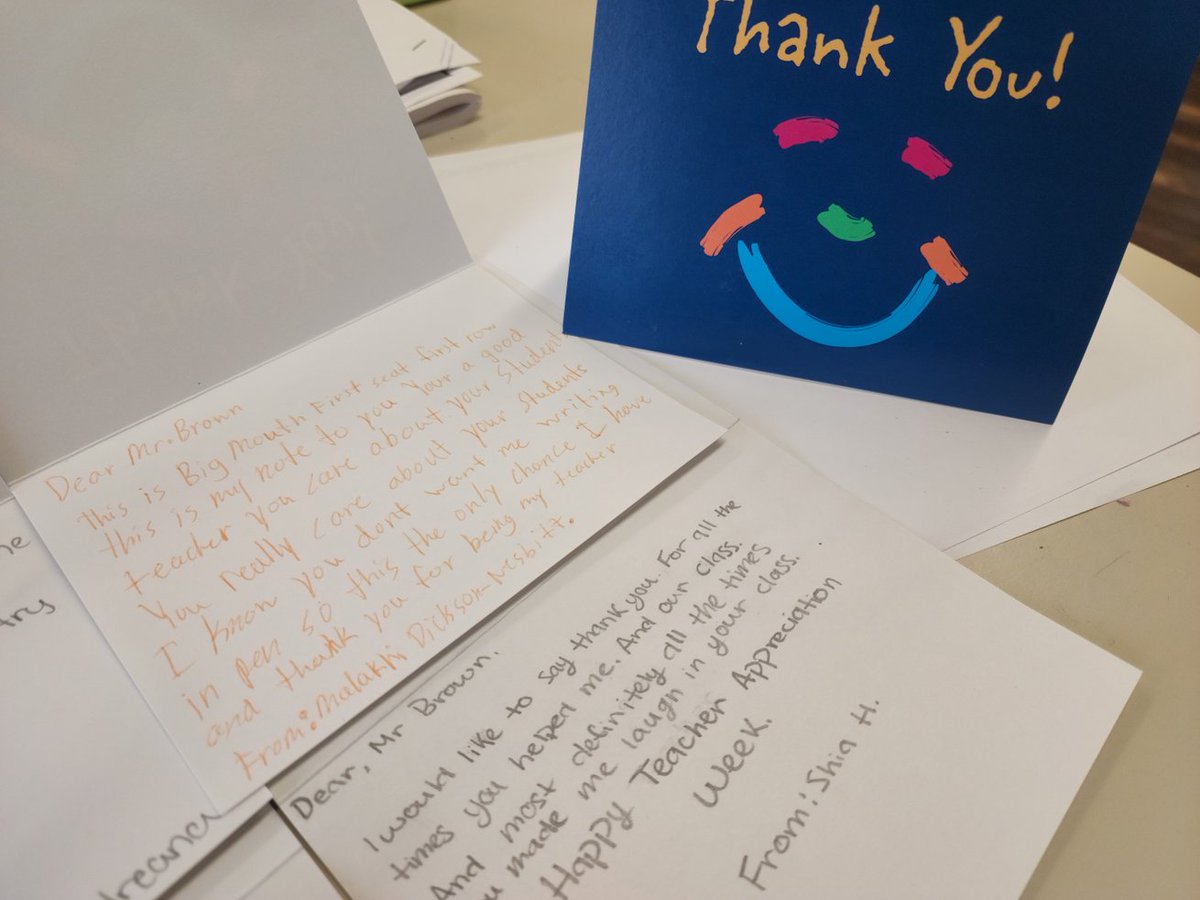 Thank You!
Dear Mr. Brown
this is Big Mouth First seat first row
this is my note to you Your a good
teacher you care about your Student
You really care about your Students
I know you dont want me writing
in pen so this the only chance I have
and thank you for being my teacher
From: Malakhi Dickson-Nesbitt.
Dear, Mr Brown.
I would like to say thank you. For all the
times you helped me. And our class.
And most definitely all the times
u made me laugh in your class.
Happy Teacher Appreciation
Week.
From: Shia H.